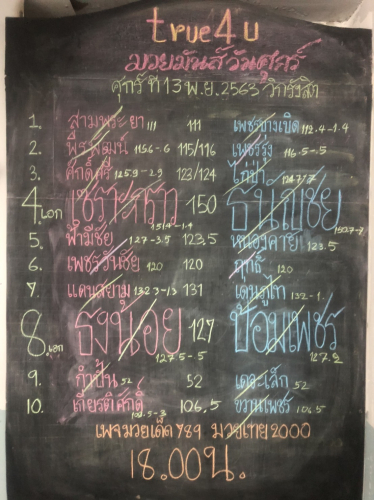 true4u
มวยมันส์วันศุกร์
ศุกร์ ที่ 13 พ.ย. 2563 วิกรังสิต
1. สามพระยา 111 111 เพชรบางเปิด 112.4-1.4
2. พีรพัฒน์ 115.6-.6 115/116 เพชรรุ่ง 116.5-.5
3. ศักดิ์ศรี 125.9-2.9 123/124 ไก่ป่า
4.เอก เพชร 151.4-1.4 150 ธนัญชัย
5. ฟ้ามีชัย 127-3.5 123.5 หนองคาย 123.5
6. เพชรวันชัย 120 120 ฤทธิ์ 120
7. แดนสยาม 132.3-1.3 131 เด่นภูไท 132-1
8.เอก ธงน้อย 127.5-.5 127 ป้อมเพชร 127.2
9. กำปั้น 52 52 เดอะเล็ก 52
10. เกียรติศักดิ์ 109.5-3 106.5 ขวานเพชร 106.5
เพจมวยเด็ด789 มวยไทย2000
18.00น.